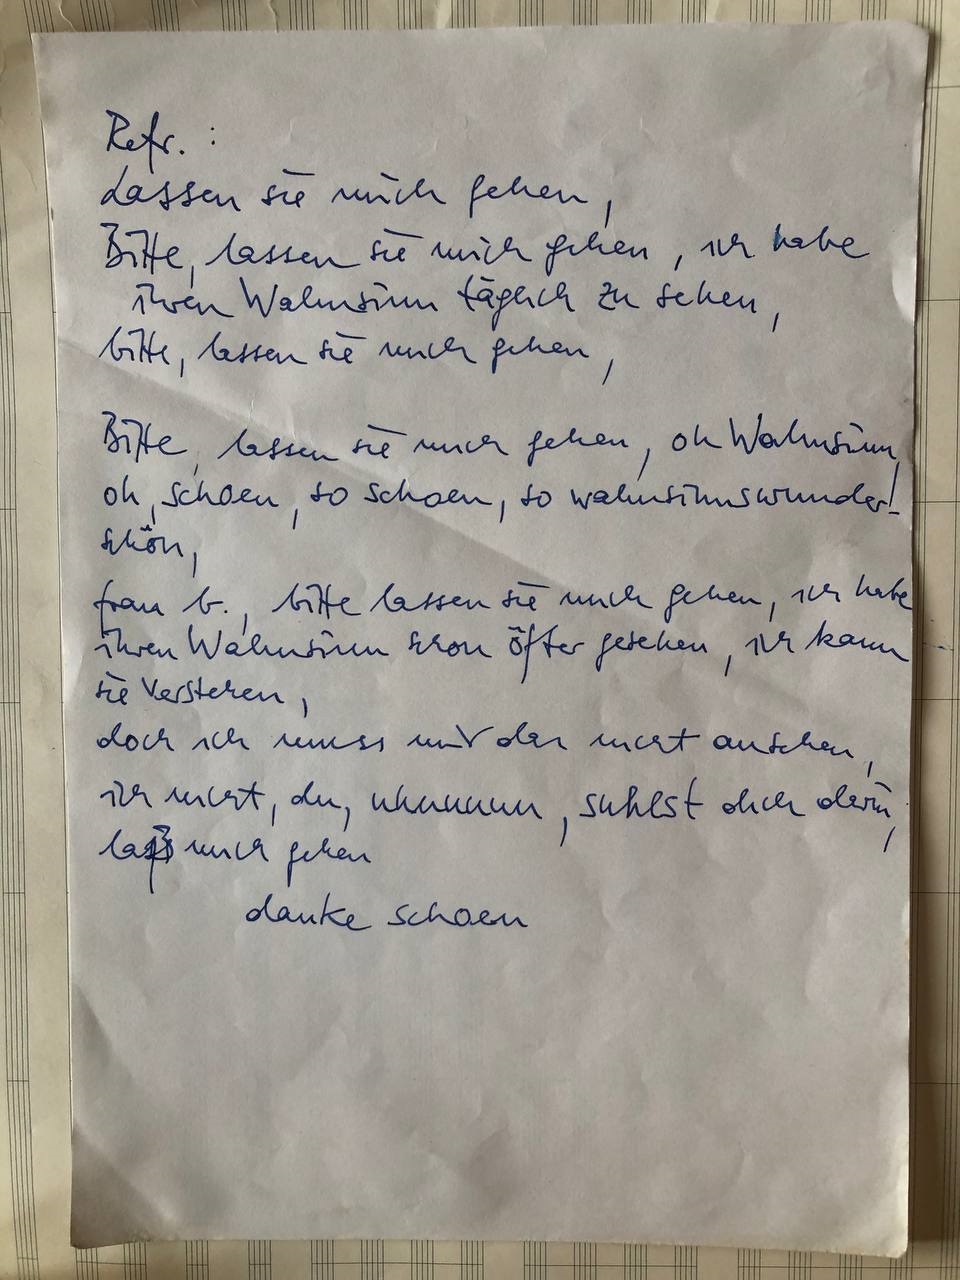 Refr. :
Lassen sie mich gehen,
Bitte, lassen sie mich gehen, ich habe
ihren Wahnsinn täglich zu sehen,
bitte, lassen sie mich gehen,
Bitte, lassen sie mich gehen, oh Wahnsinn,
oh, schoen, so schoen, so wahnsinnswunder-
schön,
frau b., bitte lassen sie mich gehen, ich habe
ihren Wahnsinn schon öfter gesehen, ich kann
sie verstehen,
doch ich muss mir den nicht ansehen,
ich nicht, du, suhlst dich darin,
laß mich gehen
danke schoen